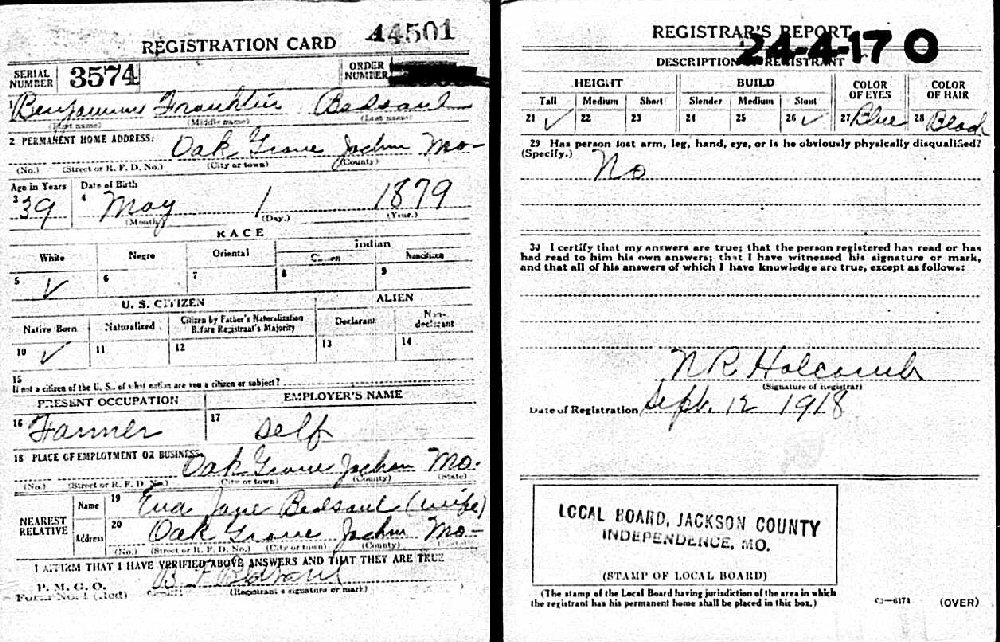 REGISTRATION CARD 44501
SERIAL NUMBER 3574 ORDER NUMBER
1 Benjamine Franklin Bedsaul
(First name) (Middle name) (Last name)
2 PERMANENT HOME ADDRESS:
Oak Grove Jackson Mo-
(No.) (Street or R. F. D. No.) (City or town) (County)
Age in Years Date of Birth
3 39 4 May 1 1879
(Month) (Day.) (Year.)
RACE
White Negro Oriental Indian
Citizen Noncitizen
5 ✓ 6 7 8 9
U. S. CITIZEN ALIEN
Native Born Naturalized Citizen by Father's Naturalization Before Registrant's Majority Declarant Non-declarant
10 ✓ 11 12 13 14
15
If not a citizen of the U. S., of what nation are you a citizen or subject?
PRESENT OCCUPATION EMPLOYER'S NAME
16 Farmer 17 self
18 PLACE OF EMPLOYMENT OR BUSINESS:
Oak Grove Jackson Mo.
(No.) (Street or R. F. D. No.) (City or town) (County) (State)
NEAREST RELATIVE
Name 19 Eva Jane Bedsaul (wife)
Address 20 Oak Grove Jackson Mo-
(No.) (Street or R. F. D. No.) (City or town) (County)
I AFFIRM THAT I HAVE VERIFIED ABOVE ANSWERS AND THAT THEY ARE TRUE
P. M. G. O.
Form No. 1 (Red) B F Bedsaul
(Registrant's signature or mark)
REGISTRAR'S REPORT
24-4-17 O
DESCRIPTION OF REGISTRANT
HEIGHT BUILD COLOR OF EYES COLOR OF HAIR
Tall Medium Short Slender Medium Stout
21 ✓ 22 23 24 25 26 ✓ 27 Blue 28 Black
29 Has person lost arm, leg, hand, eye, or is he obviously physically disqualified?
(Specify.) No
30 I certify that my answers are true; that the person registered has read or has
had read to him his own answers; that I have witnessed his signature or mark,
and that all of his answers of which I have knowledge are true, except as follows:
N R Holcomb
(Signature of Registrar)
Date of Registration Sept. 12 1918
LOCAL BOARD, JACKSON COUNTY
INDEPENDENCE, MO.
(STAMP OF LOCAL BOARD)
(The stamp of the Local Board having jurisdiction of the area in which
the registrant has his permanent home shall be placed in this box.)
C3—6171 (OVER)